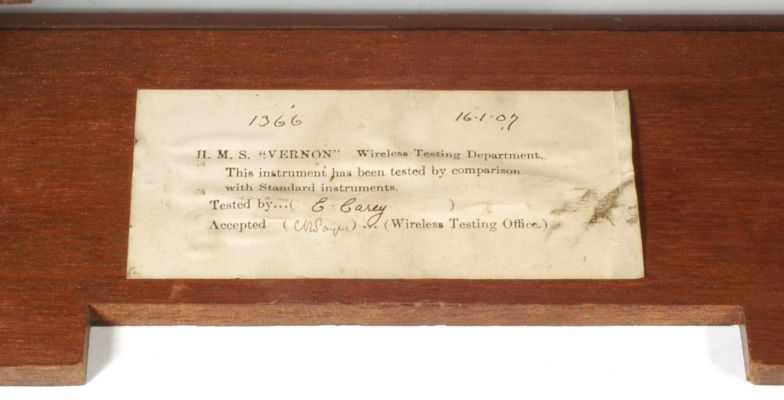 1366 16·1·07
H. M. S. "VERNON" Wireless Testing Department.
This instrument has been tested by comparison
with Standard instruments.
Tested by...( E. Carey )
Accepted ( ) ... (Wireless Testing Office.)